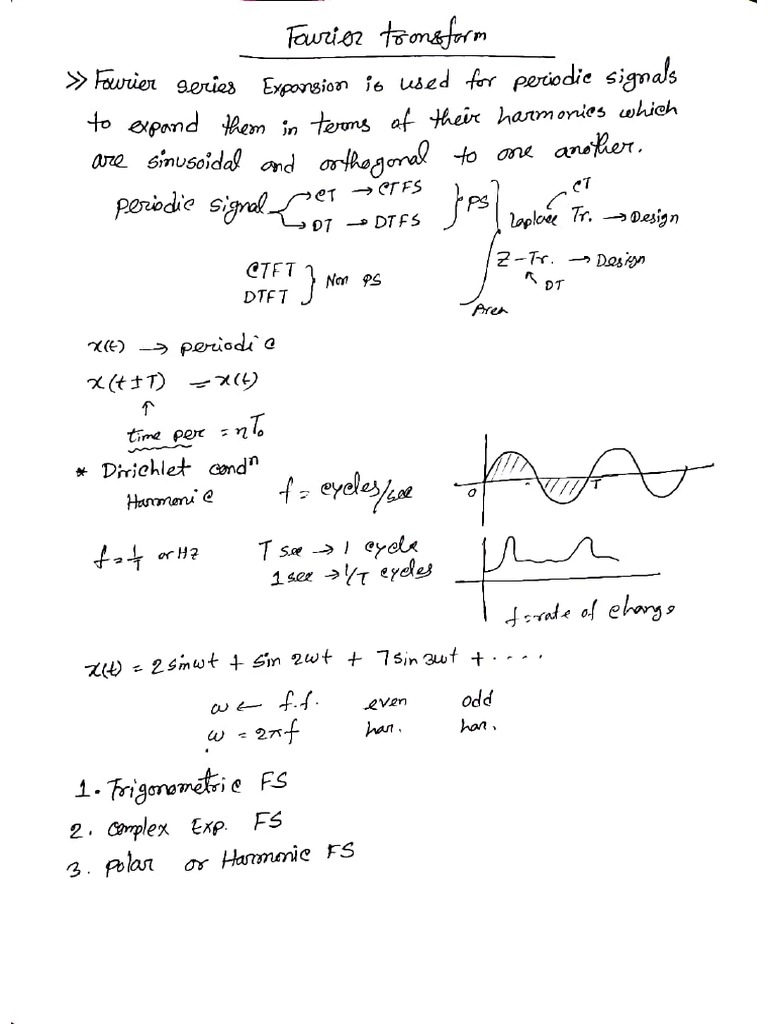 Fourier transform
>> Fourier series Expansion is used for periodic signals
to expand them in terms of their harmonics which
are sinusoidal and orthogonal to one another.
periodic signal → CT → CTFS
→ DT → DTFS
} PS
CT
Laplace Tr. → Design
Z-Tr. → Design
DT
CTFT
DTFT
} Non PS
Area
x(t) → periodic
x(t ± T) = x(t)
↑
time per = nT₀
* Dirichlet condⁿ
Harmonic
f = cycles/sec
0
T
f = 1/T or Hz
T sec → 1 cycle
1 sec → 1/T cycles
f = rate of change
x(t) = 2 sinωt + sin 2ωt + 7 sin 3ωt + ....
ω ← f.f. even odd
ω = 2πf har. har.
1. Trigonometric FS
2. Complex Exp. FS
3. Polar or Harmonic FS